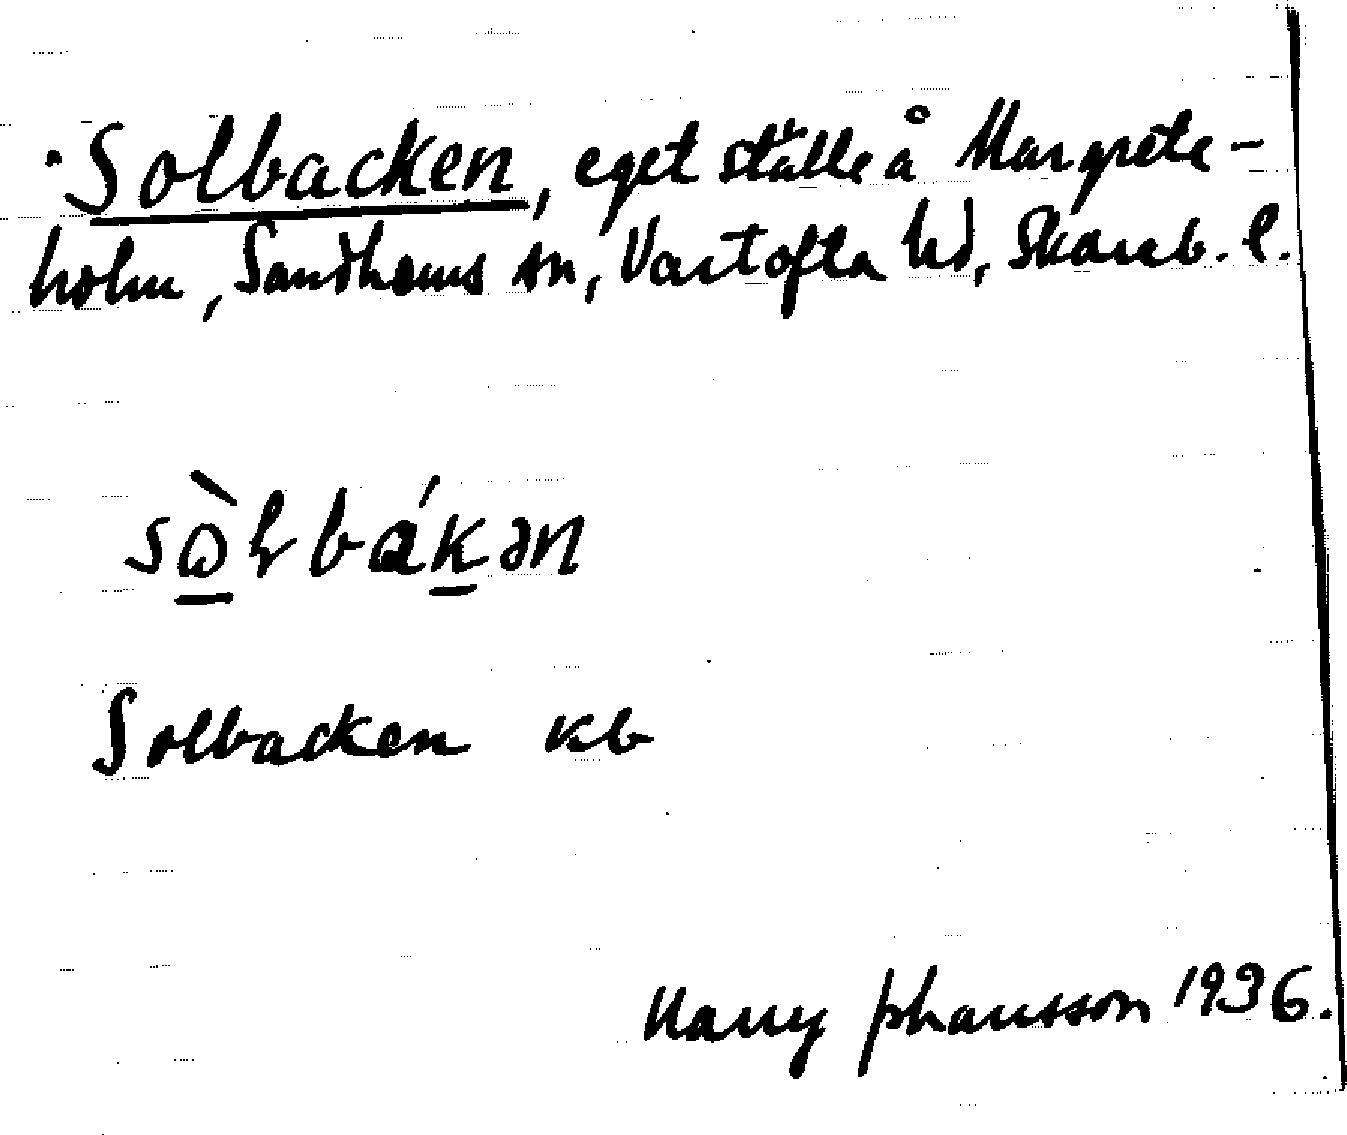 Solbacken, eget ställe å Margrete-
holm, Sandhems sn, Vartofta hd, Skarab. l.
sò̱ɫbáḵən
Solbacken kb
Harry Johansson 1936.